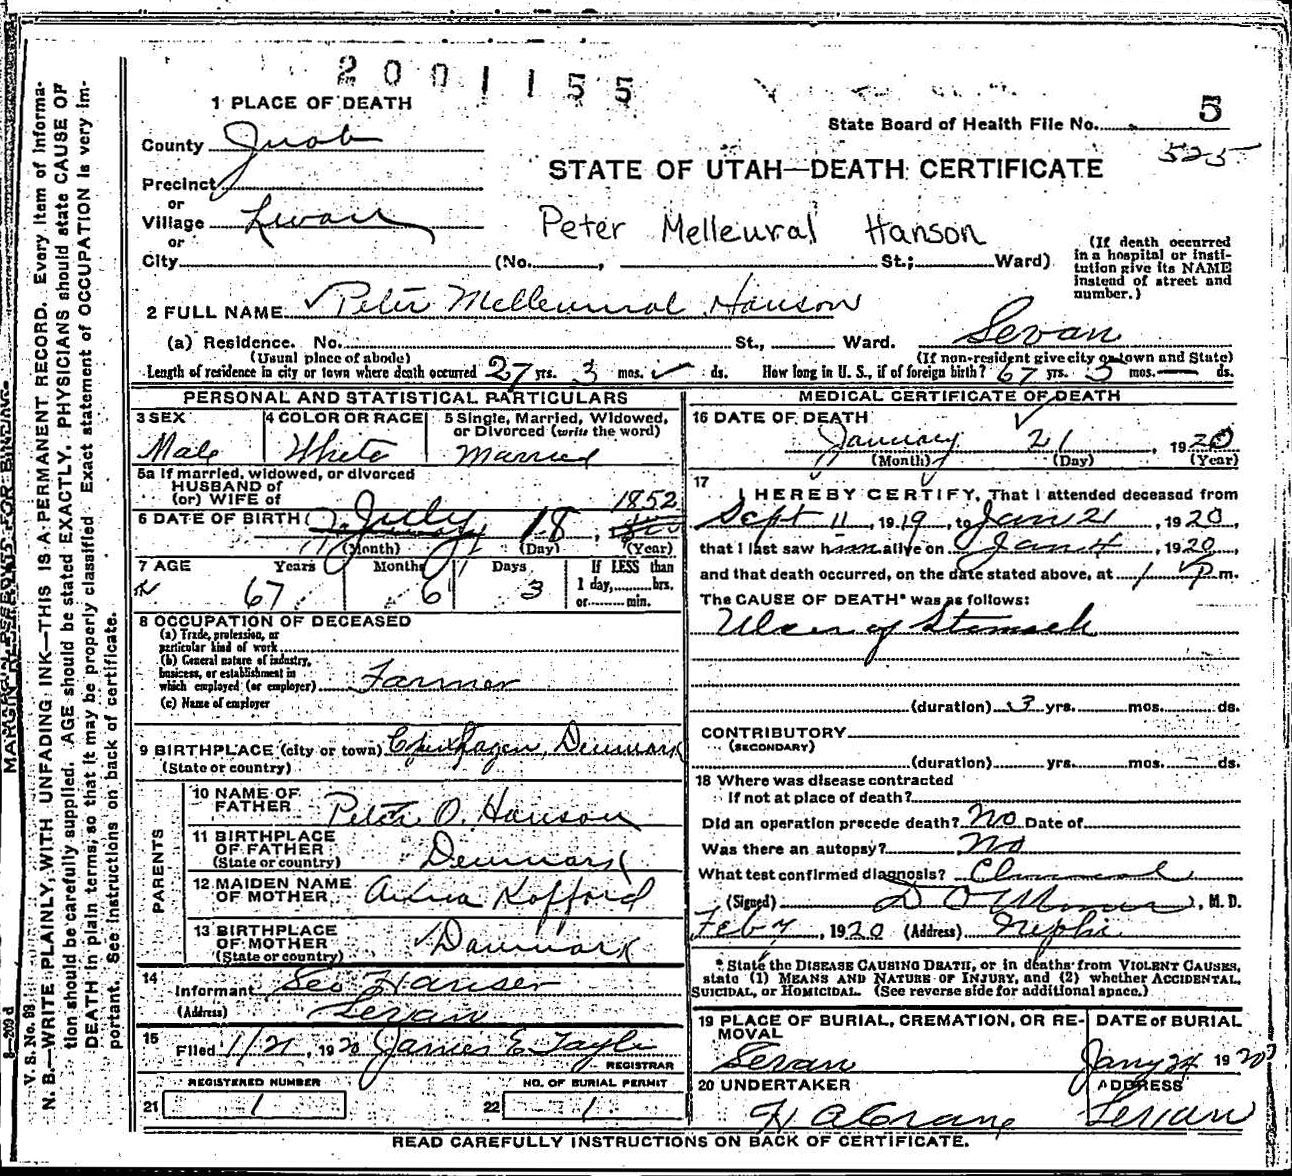 2001155
1 PLACE OF DEATH
5
State Board of Health File No.
525
County Juab
STATE OF UTAH—DEATH CERTIFICATE
Precinct
or
Village Levan
Peter Melleural Hanson
or
City (No. , St.; Ward)
(If death occurred
in a hospital or insti-
tution give its NAME
instead of street and
number.)
2 FULL NAME Peter Melleurual Hanson
(a) Residence. No. St., Ward. Levan
(Usual place of abode) (If non-resident give city or town and State)
Length of residence in city or town where death occurred 27 yrs. 3 mos. ds. How long in U. S., if of foreign birth? 67 yrs. 3 mos. — ds.
PERSONAL AND STATISTICAL PARTICULARS
3 SEX 4 COLOR OR RACE 5 Single, Married, Widowed,
or Divorced (write the word)
Male White Married
5a If married, widowed, or divorced
HUSBAND of
(or) WIFE of
1852
6 DATE OF BIRTH July 18,
(Month) (Day) (Year)
7 AGE Years Months Days If LESS than
1 day, hrs.
or min.
67 6 3
8 OCCUPATION OF DECEASED
(a) Trade, profession, or
particular kind of work
(b) General nature of industry,
business, or establishment in
which employed (or employer) Farmer
(c) Name of employer
9 BIRTHPLACE (city or town) Copenhagen, Denmark
(State or country)
PARENTS
10 NAME OF
FATHER Peter O. Hanson
11 BIRTHPLACE
OF FATHER
(State or country) Denmark
12 MAIDEN NAME
OF MOTHER Kofford
13 BIRTHPLACE
OF MOTHER
(State or country) Danmark
14
Informant Geo Hanson
(Address) Levan
15
Filed 1/21, 1920 James E Taylor
REGISTRAR
REGISTERED NUMBER NO. OF BURIAL PERMIT
21 1 22 1
MEDICAL CERTIFICATE OF DEATH
16 DATE OF DEATH
January 21, 1920
(Month) (Day) (Year)
17
I HEREBY CERTIFY, That I attended deceased from
Sept 11, 1919, to Jan 21, 1920,
that I last saw him alive on Jan 4, 1920,
and that death occurred, on the date stated above, at 1 P m.
The CAUSE OF DEATH* was as follows:
Ulcer of Stomach
(duration) 3 yrs. mos. ds.
CONTRIBUTORY
(SECONDARY)
(duration) yrs. mos. ds.
18 Where was disease contracted
If not at place of death?
Did an operation precede death? No Date of
Was there an autopsy? No
What test confirmed diagnosis? Clinical
(Signed) , M. D.
Feb 7, 1920 (Address) Nephi
* State the DISEASE CAUSING DEATH, or in deaths from VIOLENT CAUSES,
state (1) MEANS AND NATURE OF INJURY, and (2) whether ACCIDENTAL,
SUICIDAL, or HOMICIDAL. (See reverse side for additional space.)
19 PLACE OF BURIAL, CREMATION, OR RE-
MOVAL
DATE of BURIAL
Levan Jany 24 1920
20 UNDERTAKER ADDRESS
H A Crane Levan
READ CAREFULLY INSTRUCTIONS ON BACK OF CERTIFICATE.
MARGIN RESERVED FOR BINDING.
S—209 d
V. S. No. 98
N. B.—WRITE PLAINLY, WITH UNFADING INK—THIS IS A PERMANENT RECORD. Every item of informa-
tion should be carefully supplied. AGE should be stated EXACTLY. PHYSICIANS should state CAUSE OF
DEATH in plain terms, so that it may be properly classified. Exact statement of OCCUPATION is very im-
portant. See instructions on back of certificate.